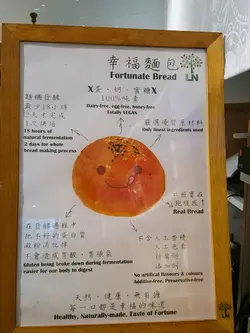 幸福麵包
Fortunate Bread
LN
X蛋、奶、蜜糖X
100%純素
Dairy-free, egg-free, honey-free
Totally VEGAN
麵種發酵
最少18小時
2天才完成
18 hours of
natural fermentation
2 days for whole
bread making process
嚴選優質原材料
Only finest ingredients used
Real Bread
在發酵過程中
澱粉消化掉
不會造成胃酸、胃積氣
Gluten being broke down during fermentation
easier for our body to digest
不含人工香精
人工色素
防腐劑
添加劑
No artifical flavours & colours
Additive-free, Preservative-free
天然、健康、無負擔
每一口都是幸福的味道
Healthy, Naturally-made, Taste of Fortune